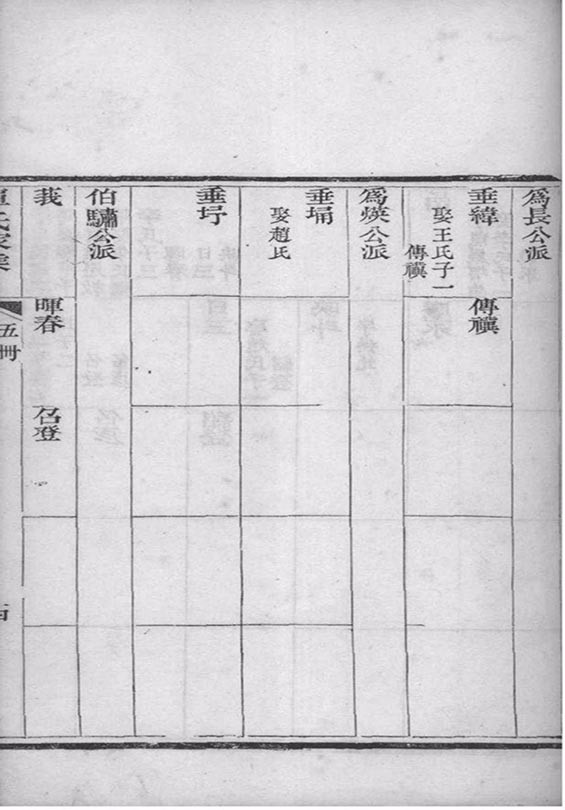 爲長公派
垂緯 傳禩
娶王氏子一
傳禩
爲煐公派
垂埇
娶趙氏
垂圩
伯驌公派
莪 暉春 召登
五冊